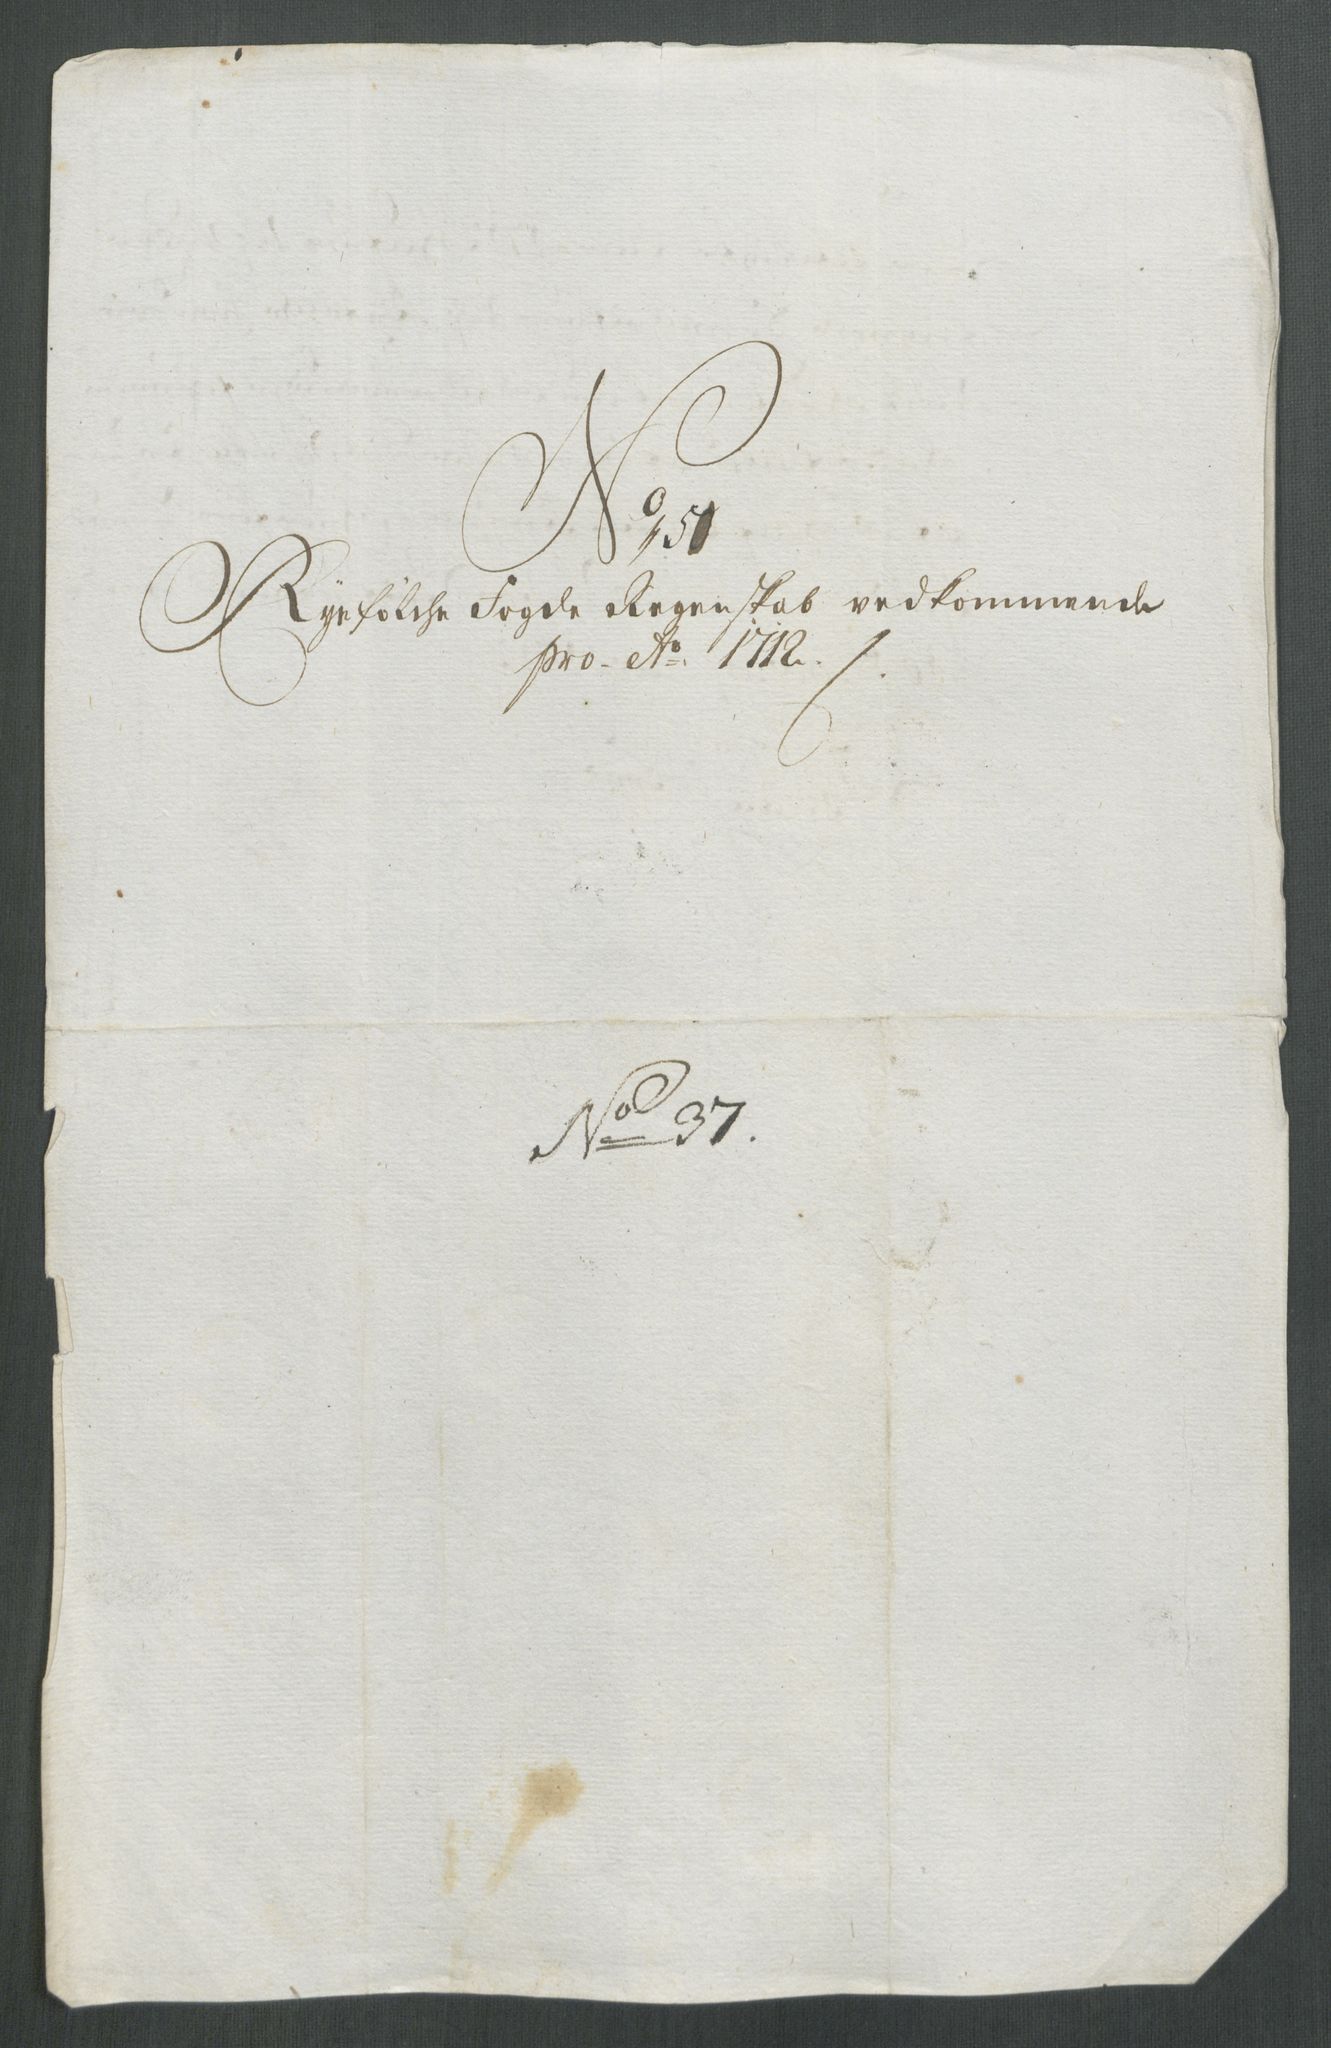 No 51
Ryefölche Fogde Regenskab vedkommende
pro Ao 1712.
No 37.